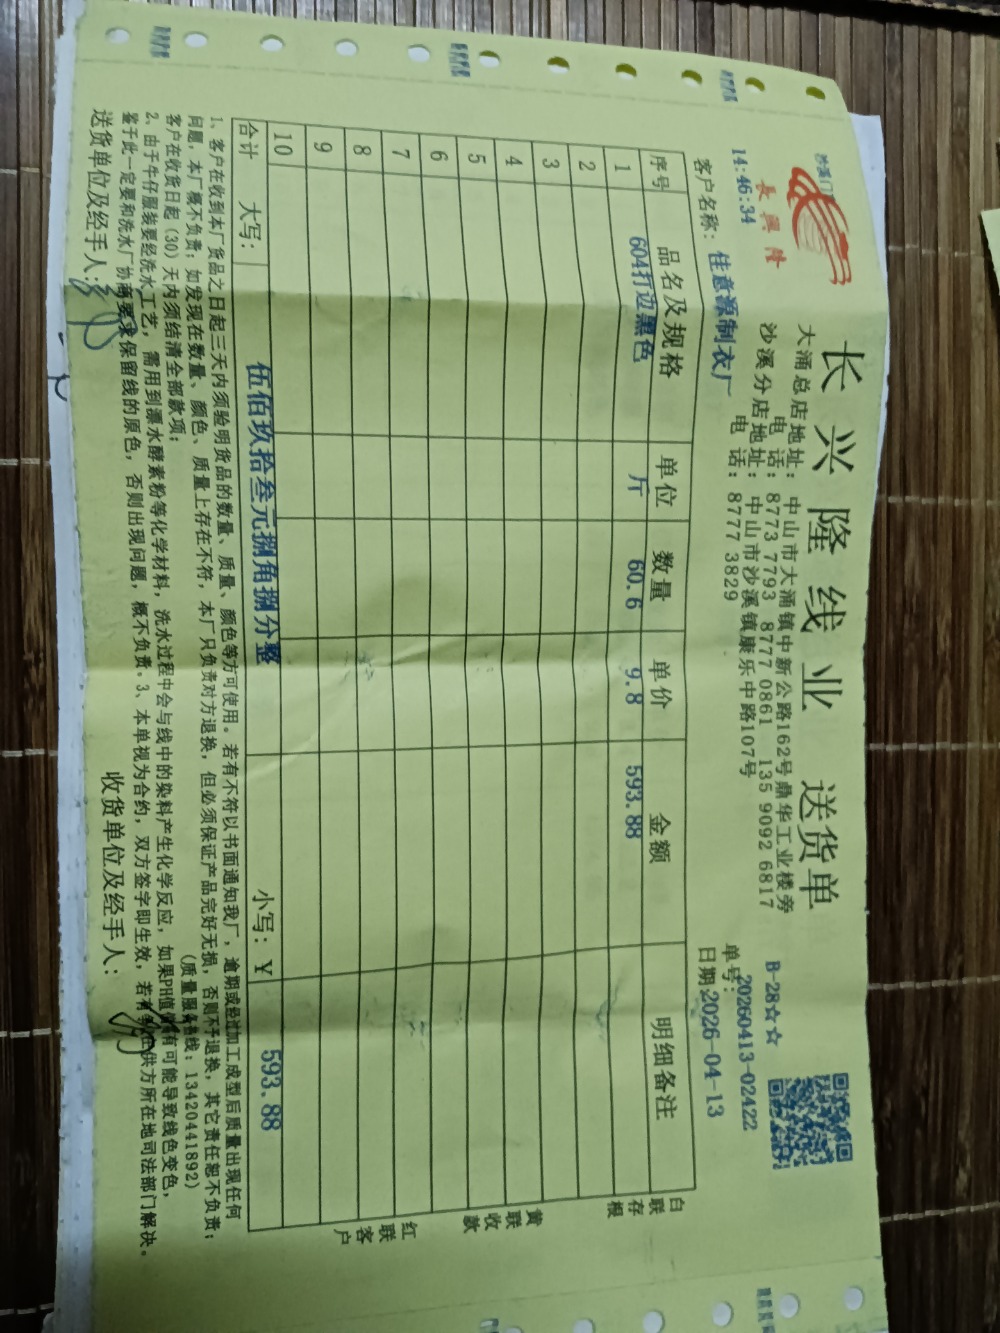 长兴隆线业 送货单
沙溪门
長興隆
大涌总店地址：中山市大涌镇中新公路162号鼎华工业楼旁
电话：8773 7793 8777 0861 135 9092 6817
沙溪分店地址：中山市沙溪镇康乐中路107号
电话：8777 3829
B-28☆☆
单号：20260413-02422
14:46:34
客户名称：佳意源制衣厂
日期：2026-04-13
序号 品名及规格 单位 数量 单价 金额 明细备注
1 604打边黑色 斤 60.6 9.8 593.88
2
3
4
5
6
7
8
9
10
合计 大写：伍佰玖拾叁元捌角捌分整 小写：¥ 593.88
白联存根
黄联收款
红联客户
1、客户在收到本厂货品之日起三天内须验明货品的数量、质量、颜色等方可使用。若有不符以书面通知我厂，逾期或经过加工成型后质量出现任何
问题，本厂概不负责；如发现在数量、颜色、质量上存在不符，本厂只负责对方退换，但必须保证产品完好无损，否则不予退换，其它责任恕不负责；
客户在收货日起（30）天内须结清全部款项；
（质量服务热线：13420441892）
2、由于牛仔服装要经洗水工艺，需用到漂水酵素粉等化学材料，洗水过程中会与线中的染料产生化学反应，如果PH值 有可能导致线色变色，
鉴于此一定要和洗水厂协商要求保留线的原色，否则出现问题，概不负责。3、本单视为合约，双方签字即生效，若有 供方所在地司法部门解决。
送货单位及经手人：
收货单位及经手人：